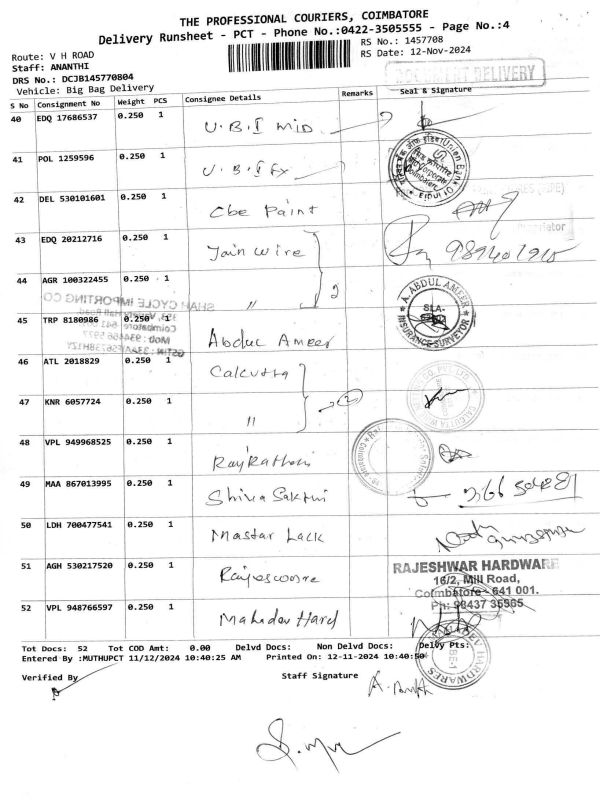 THE PROFESSIONAL COURIERS, COIMBATORE
Delivery Runsheet - PCT - Phone No.:0422-3505555 - Page No.:4
Route: V H ROAD
RS No.: 1457708
Staff: ANANTHI
RS Date: 12-Nov-2024
DRS No.: DCJB145770804
Vehicle: Big Bag Delivery
DOCUMENT DELIVERY
S No Consignment No Weight PCS Consignee Details Remarks Seal & Signature
40 EDQ 17686537 0.250 1 U.B.I MID.
41 POL 1259596 0.250 1 U.B.I FX
Union Bank Of India
Coimbatore
42 DEL 530101601 0.250 1 Cbe Paint
43 EDQ 20212716 0.250 1 Jain Wire
44 AGR 100322455 0.250 1 "
2
SHAH CYCLE IMPORTING CO
45 TRP 8180986 0.250 1 Abdul Ameer
A. ABDUL AMEER
SLA-
INSURANCE SURVEYOR
46 ATL 2018829 0.250 1 Calcutta
47 KNR 6057724 0.250 1 "
2
48 VPL 949968525 0.250 1 Raj Rathori
49 MAA 867013995 0.250 1 Shiva Sakthi
50 LDH 700477541 0.250 1 Mastar Lack
51 AGH 530217520 0.250 1 Rajeswore
RAJESHWAR HARDWARE
16/2, Mill Road,
Coimbatore - 641 001.
Ph: 98437 35565
52 VPL 948766597 0.250 1 Mahadev Hard
HARDWARES
Tot Docs: 52 Tot COD Amt: 0.00 Delvd Docs: Non Delvd Docs: Delvy Pts:
Entered By :MUTHUPCT 11/12/2024 10:40:25 AM Printed On: 12-11-2024 10:40:50
Verified By
Staff Signature